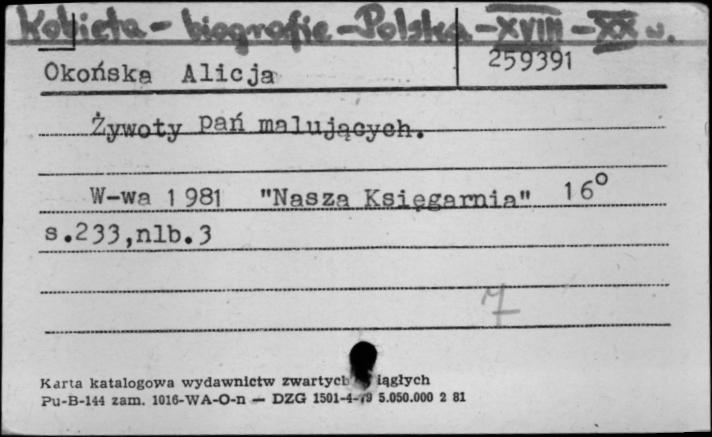 Kobieta - biografie - Polska - XVIII - XX w.
259391
Okońska Alicja
Żywoty pań malujących.
W-wa 1981 "Nasza Księgarnia" 16°
s.233,nlb.3
7
Karta katalogowa wydawnictw zwartych iągłych
Pu-B-144 zam. 1016-WA-O-n — DZG 1501-4-79 5.050.000 2 81